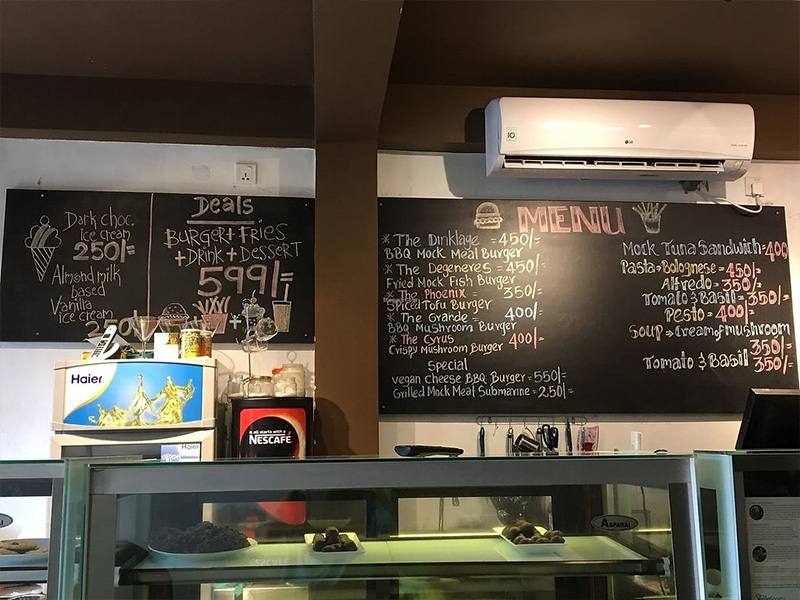 Dark choc.
ice cream
250/-
Almond milk
based
Vanilla
ice cream
Deals
BURGER + FRiES
+ DRiNK + DESSERT
599/-
MENU
* The Dinklage = 450/-
BBQ Mock Meal Burger
* The Degeneres = 450/-
Fried Mock Fish Burger
* The Phoenix = 350/-
Spiced Tofu Burger
* The Grande = 400/-
BBQ Mushroom Burger
* The Cyrus 400/-
Crispy Mushroom Burger
Special
vegan cheese BBQ Burger = 550/-
Grilled Mock Meat Submarine = 250/-
Mock Tuna Sandwich = 400
Pasta → Bolognese = 450/-
Alfredo = 350/-
Tomato & Basil = 350/-
Pesto = 400/-
Soup → Cream of mushroom
350/-
Tomato & Basil 350/-
LG
Haier
Haier
It all starts with a
NESCAFÉ
ASPARAI